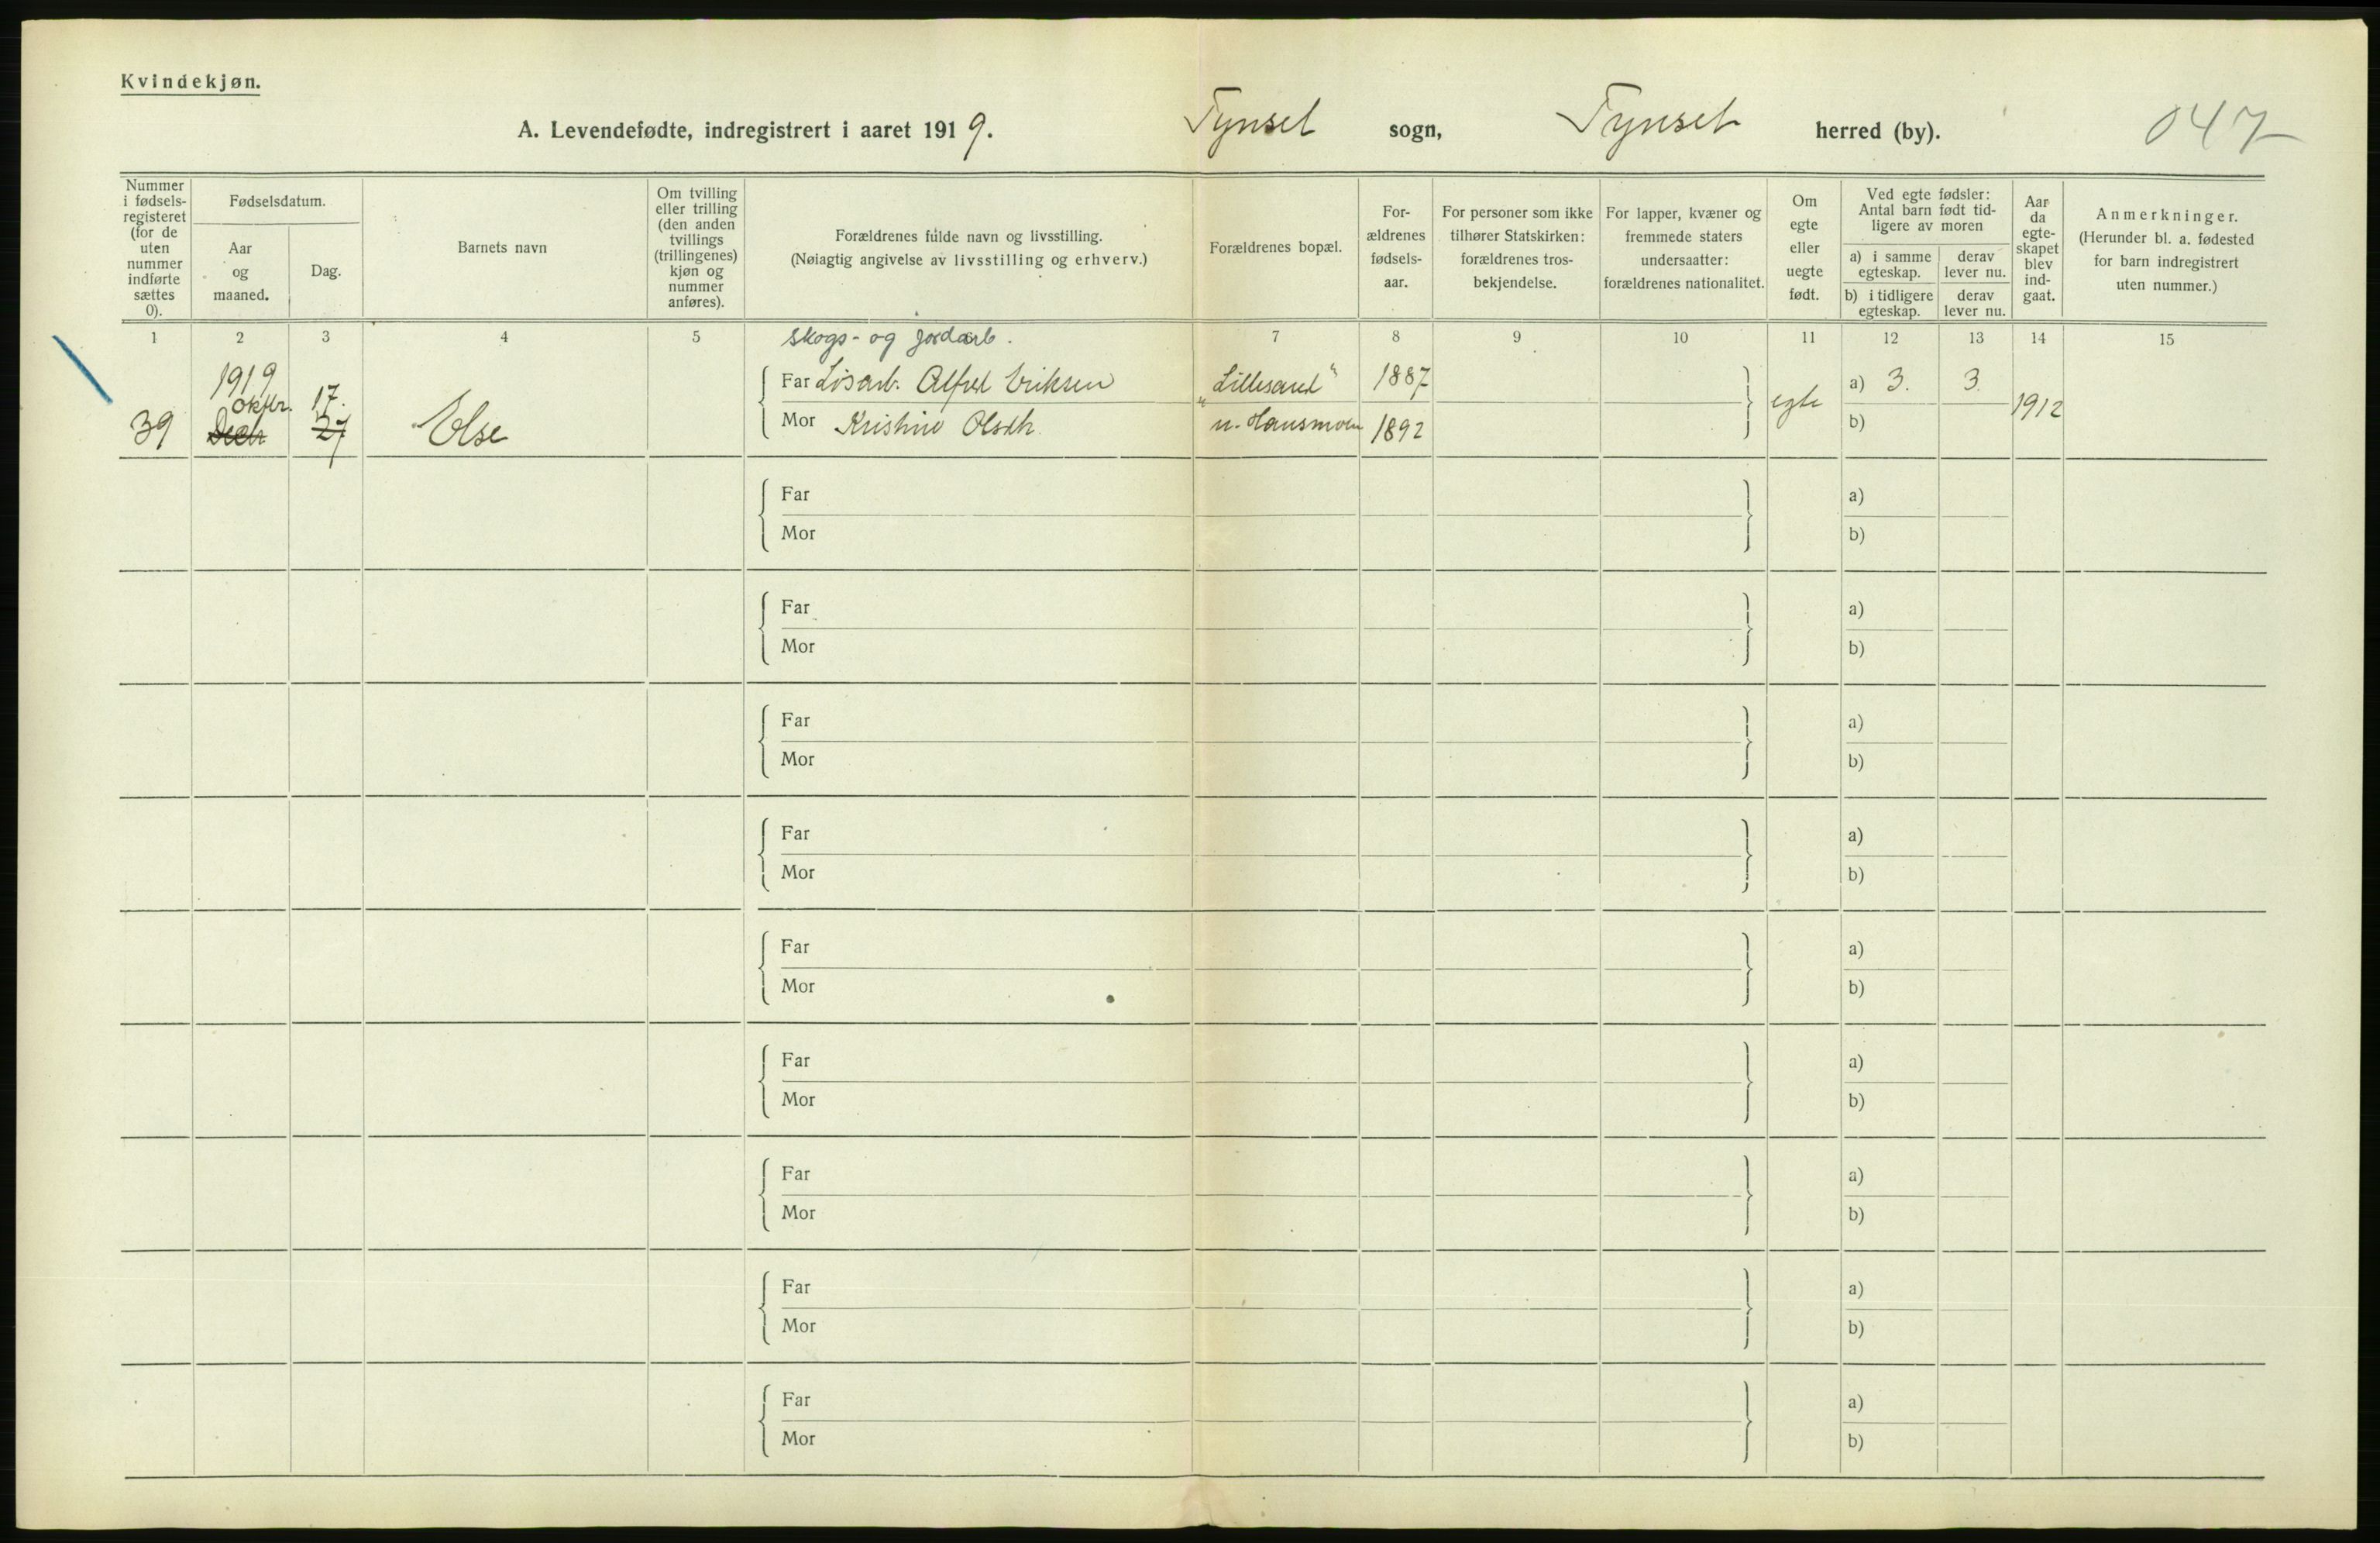 Kvindekjøn.
A. Levendefødte, indregistrert i aaret 1919. Tynset sogn, Tynset herred (by). 047
Nummer i fødsels-registeret (for de uten nummer indførte sættes 0).
Fødselsdatum.
Aar og maaned.
Dag.
Barnets navn
Om tvilling eller trilling (den anden tvillings (trillingenes) kjøn og nummer anføres).
Forældrenes fulde navn og livsstilling.
(Nøiagtig angivelse av livsstilling og erhverv.)
Forældrenes bopæl.
For-ældrenes fødsels-aar.
For personer som ikke tilhører Statskirken: forældrenes tros-bekjendelse.
For lapper, kvæner og fremmede staters undersaatter: forældrenes nationalitet.
Om egte eller uegte født.
Ved egte fødsler: Antal barn født tid-ligere av moren
a) i samme egteskap.
derav lever nu.
b) i tidligere egteskap.
derav lever nu.
Aar da egte-skapet blev ind-gaat.
Anmerkninger.
(Herunder bl. a. fødested for barn indregistrert uten nummer.)
1 2 3 4 5 7 8 9 10 11 12 13 14 15
Skogs- og jordarb.
1919
Oktbr. 17.
39 Decbr 27 Else
Far Løsarb. Alfred Eriksen "Lillesand" 1887 egte a) 3. 3. 1912
Mor Kristine Olsdtr. 1892 b)
Far a)
Mor b)
Far a)
Mor b)
Far a)
Mor b)
Far a)
Mor b)
Far a)
Mor b)
Far a)
Mor b)
Far a)
Mor b)
Far a)
Mor b)
Far a)
Mor b)